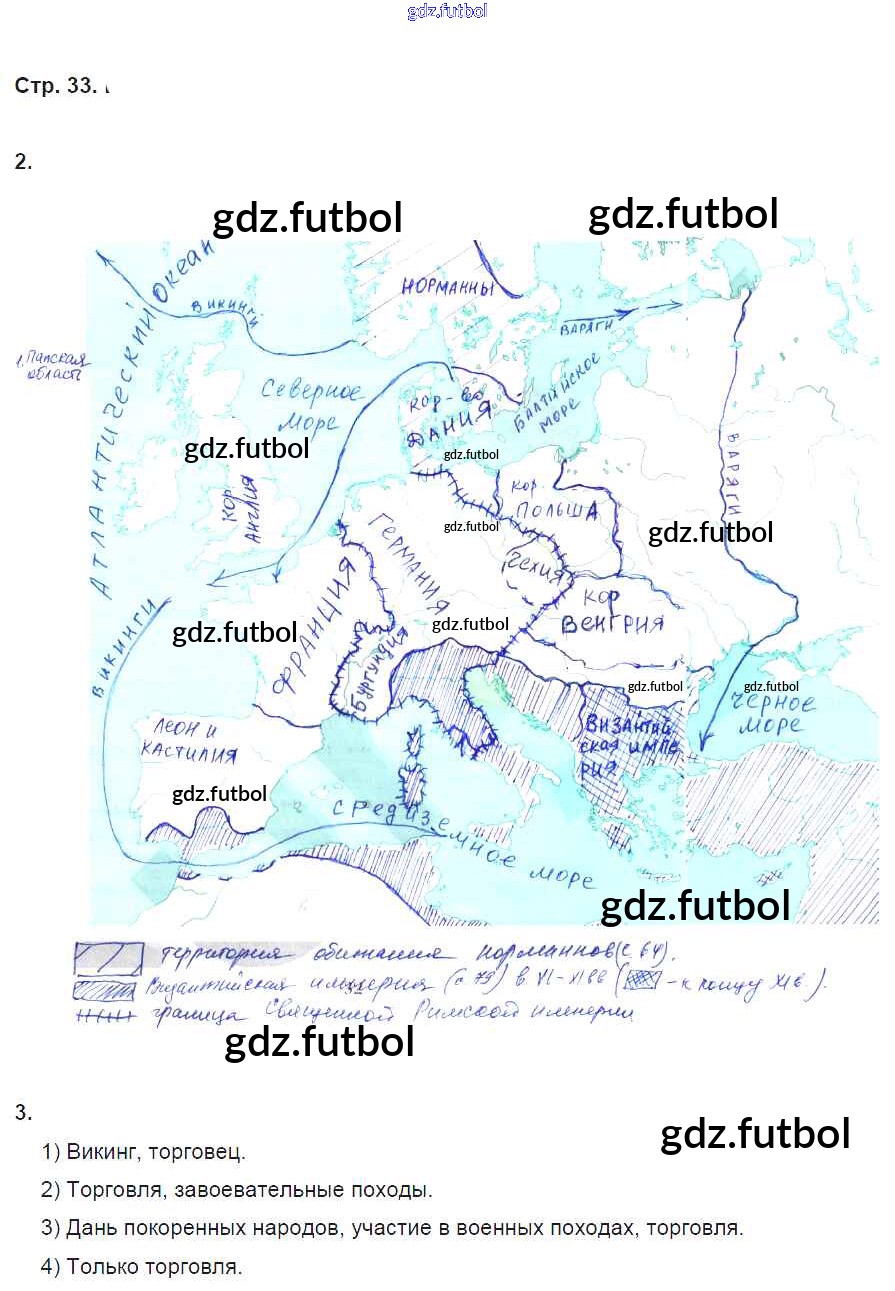 gdz.futbol
Стр. 33.
2.
gdz.futbol
gdz.futbol
АТЛАНТИЧЕСКИЙ Океан
ВИКИНГИ
НОРМАННЫ
ВАРЯГИ
1. Папская область
Северное море
кор-во ДАНИЯ
БАЛТИЙСКОЕ МОРЕ
gdz.futbol
gdz.futbol
кор. Англия
кор. ПОЛЬША
ВАРЯГИ
gdz.futbol
gdz.futbol
ГЕРМАНИЯ
ЧЕХИЯ
ФРАНЦИЯ
кор ВЕНГРИЯ
ВИКИНГИ
gdz.futbol
gdz.futbol
Бургундия
gdz.futbol
gdz.futbol
ЧЕРНОЕ МОРЕ
ЛЕОН И КАСТИЛИЯ
ВИЗАНТИЙ
СКАЯ ИМПЕ
РИЯ
gdz.futbol
СРЕДИЗЕМНОЕ МОРЕ
gdz.futbol
территория обитания норманнов (с 64).
Византийская империя (с 79) в VI-XI вв ( - к концу XI в.).
граница Священной Римской империи
gdz.futbol
3.
gdz.futbol
1) Викинг, торговец.
2) Торговля, завоевательные походы.
3) Дань покоренных народов, участие в военных походах, торговля.
4) Только торговля.